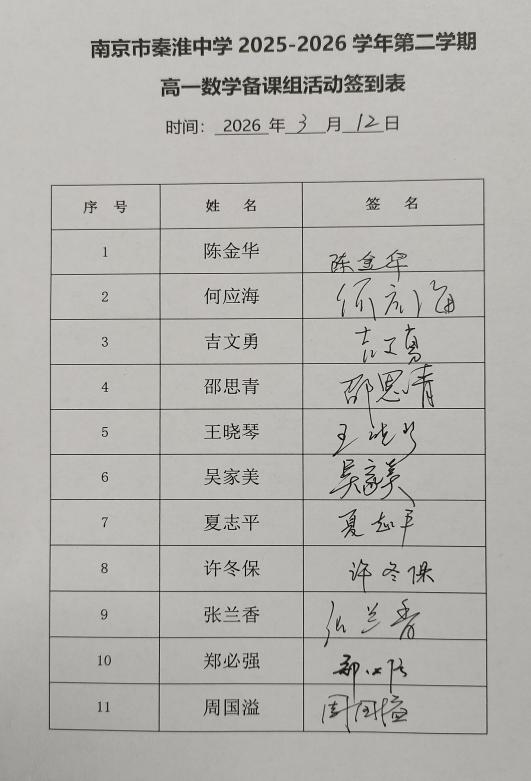 南京市秦淮中学2025-2026学年第二学期
高一数学备课组活动签到表
时间：2026年3月12日
序 号 姓 名 签 名
1 陈金华 陈金华
2 何应海 何应海
3 吉文勇 吉文勇
4 邵思青 邵思青
5 王晓琴 王晓琴
6 吴家美 吴家美
7 夏志平 夏志平
8 许冬保 许冬保
9 张兰香 张兰香
10 郑必强 郑必强
11 周国溢 周国溢